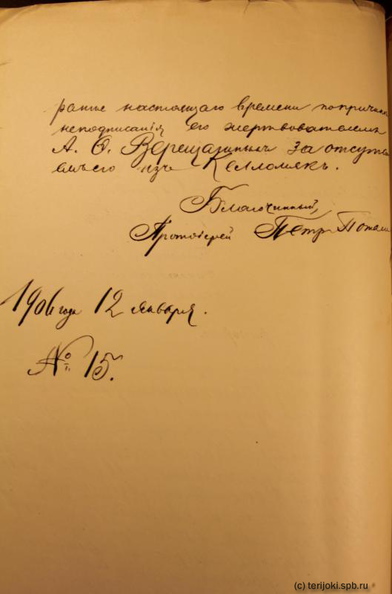 ранѣе настоящаго времени по причинѣ
неподписанія его жертвователемъ
А. Ѳ. Верещагинымъ за отсут
емъ его изъ Келломякъ.
Благочинный,
Протоіерей Петръ Поташ
1906 года 12 января.
№ 15.
(c) terijoki.spb.ru